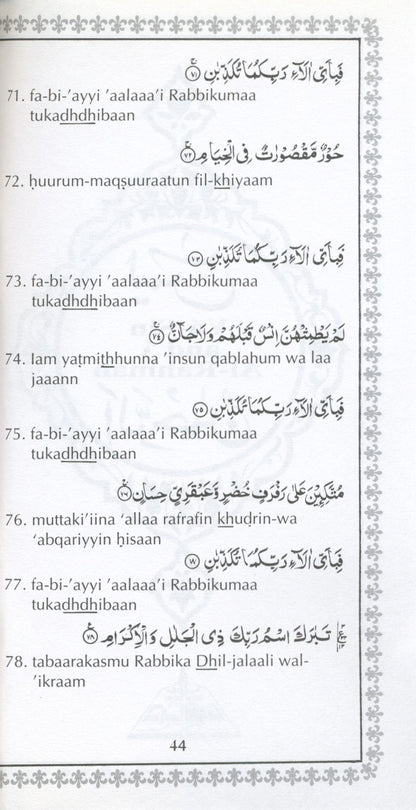 فَبِاَيِّ اٰلَآءِ رَبِّكُمَا تُكَذِّبٰنِ ﴿٧١﴾
71. fa-bi-’ayyi ’aalaaa’i Rabbikumaa
tukadhdhibaan
حُوْرٌ مَّقْصُوْرٰتٌ فِى الْخِيَامِ ﴿٧٢﴾
72. ḥuurum-maqṣuuraatun fil-khiyaam
فَبِاَيِّ اٰلَآءِ رَبِّكُمَا تُكَذِّبٰنِ ﴿٧٣﴾
73. fa-bi-’ayyi ’aalaaa’i Rabbikumaa
tukadhdhibaan
لَمْ يَطْمِثْهُنَّ اِنْسٌ قَبْلَهُمْ وَلَا جَآنٌّ ﴿٧٤﴾
74. lam yaṭmithhunna ’insun qablahum wa laa
jaaann
فَبِاَيِّ اٰلَآءِ رَبِّكُمَا تُكَذِّبٰنِ ﴿٧٥﴾
75. fa-bi-’ayyi ’aalaaa’i Rabbikumaa
tukadhdhibaan
مُتَّكِـِٕيْنَ عَلٰى رَفْرَفٍ خُضْرٍ وَّعَبْقَرِيٍّ حِسَانٍ ﴿٧٦﴾
76. muttaki’iina ‘allaa rafrafin khuḍrin-wa
‘abqariyyin ḥisaan
فَبِاَيِّ اٰلَآءِ رَبِّكُمَا تُكَذِّبٰنِ ﴿٧٧﴾
77. fa-bi-’ayyi ’aalaaa’i Rabbikumaa
tukadhdhibaan
تَبٰرَكَ اسْمُ رَبِّكَ ذِى الْجَلٰلِ وَالْاِكْرَامِ ﴿٧٨﴾
78. tabaarakasmu Rabbika Dhil-jalaali wal-
’ikraam
44